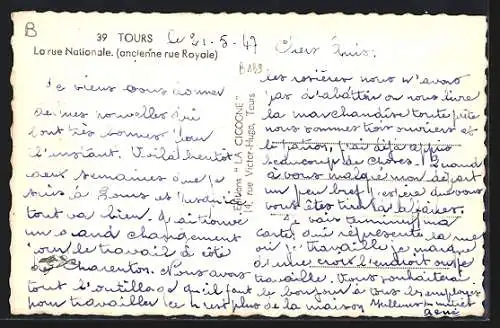 B
39 TOURS
La rue Nationale. (ancienne rue Royale)
Le 21-5-47
Chers Amis.
B 189
Editions "LA CIGOGNE"
rue Victor-Hugo, Tours
Je viens vous donner
de mes nouvelles qui
sont très bonnes pour
l'instant. Voilà bientôt
deux semaines que je
suis à Tours et
tout va bien. J'ai trouvé
un grand changement
pour le travail à côté
de Charenton. Nous avons
tout l'outillage qu'il faut
pour travailler ce n'est plus de la maison
les rosières nous n'avons
pas à l'abattoir on nous livre
la marchandise toute prête
nous sommes trois ouvriers et
le patron, j'ai déjà appris
beaucoup de choses. Quand
à vous malgré mon départ
un peu bref j'espère que vous
vous êtes tiré la affaires.
Je vais terminer ma
carte qui représente la rue
où je travaille je marque
d'une croix l'endroit où je
travaille. Vous souhaiterez
le bonjour à tous les employés
Meilleures amitiés
René